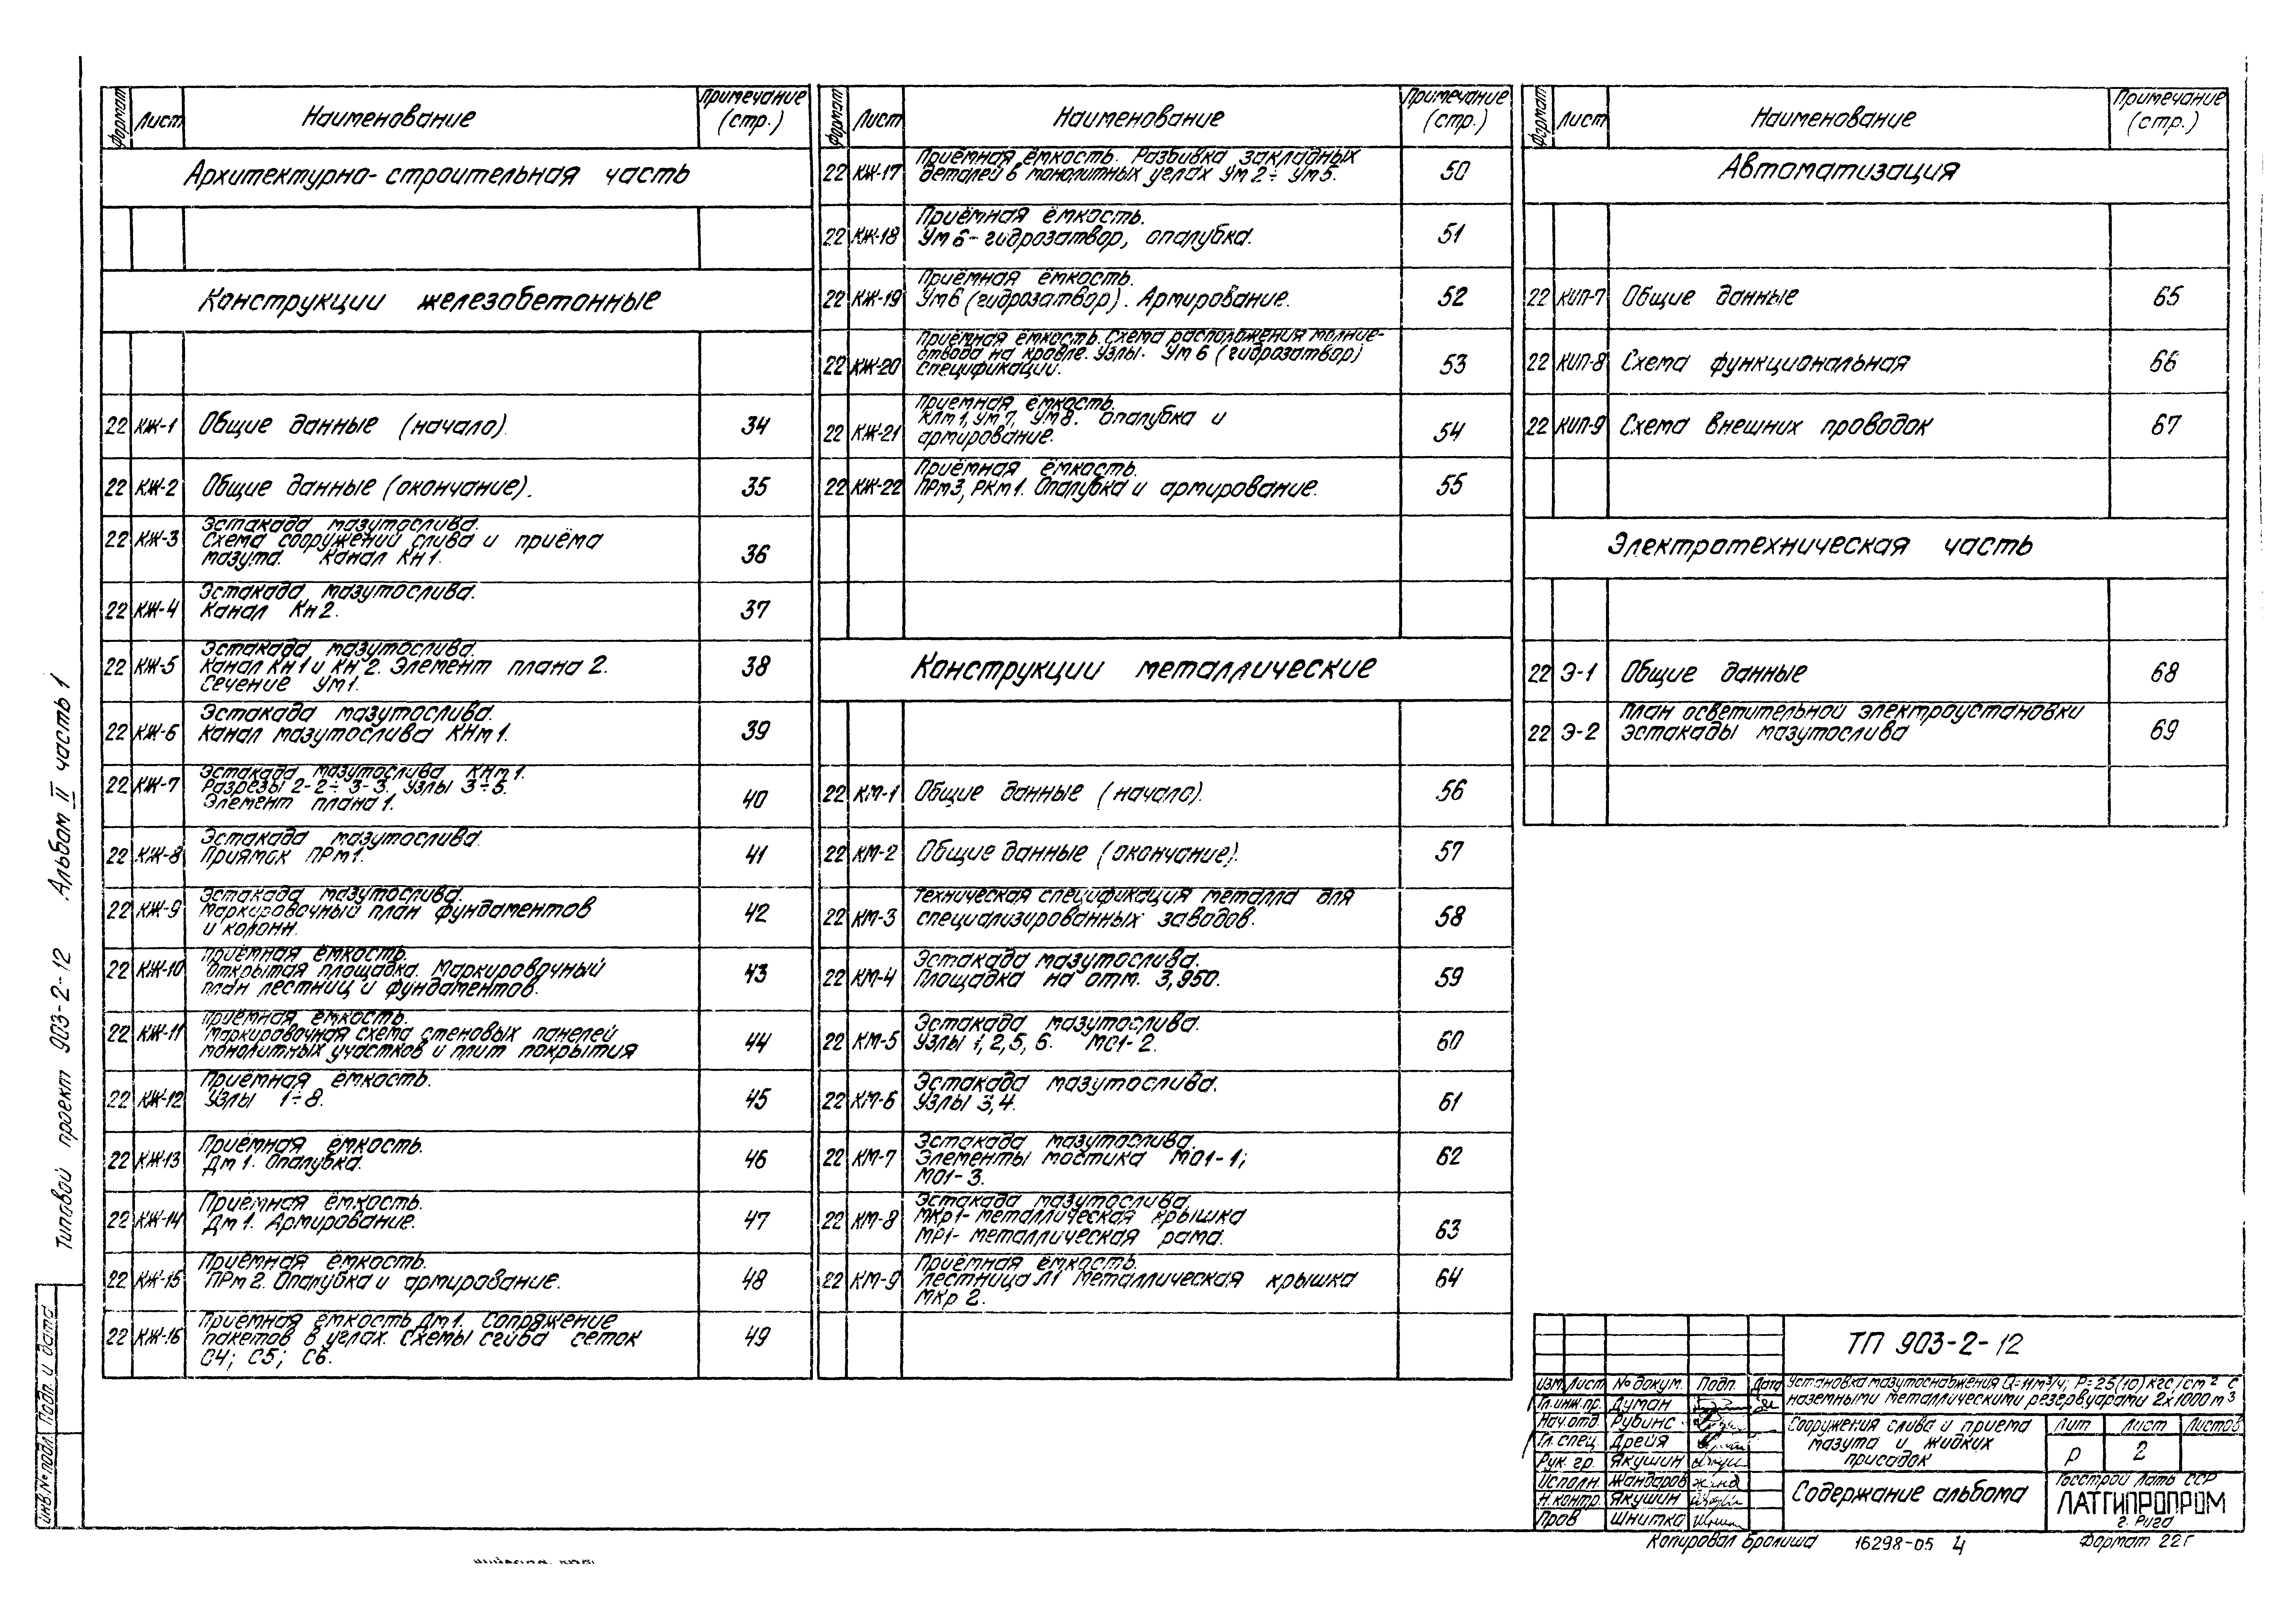 Типовой проект 903-2-12 Альбом II часть 1
Инв.№подл. Подп. и дата
Формат Лист Наименование Примечание (стр.)
Архитектурно-строительная часть
Конструкции железобетонные
22 КЖ-1 Общие данные (начало). 34
22 КЖ-2 Общие данные (окончание). 35
Эстакада мазутослива.
22 КЖ-3 Схема сооружений слива и приёма
мазута. Канал Кн1. 36
Эстакада мазутослива.
22 КЖ-4 Канал Кн2. 37
Эстакада мазутослива.
22 КЖ-5 Канал Кн1 и Кн2. Элемент плана 2. 38
Сечение Ум1.
Эстакада мазутослива.
22 КЖ-6 Канал мазутослива КНм1. 39
Эстакада мазутослива КНм1.
22 КЖ-7 Разрезы 2-2÷3-3. Узлы 3÷5.
Элемент плана 1. 40
Эстакада мазутослива.
22 КЖ-8 Приямок ПРм1. 41
Эстакада мазутослива.
22 КЖ-9 Маркировочный план фундаментов 42
и колонн.
Приёмная ёмкость.
22 КЖ-10 Открытая площадка. Маркировочный 43
план лестниц и фундаментов.
Приёмная ёмкость.
22 КЖ-11 Маркировочная схема стеновых панелей
монолитных участков и плит покрытия 44
Приёмная ёмкость.
22 КЖ-12 Узлы 1÷8. 45
Приёмная ёмкость.
22 КЖ-13 Дм1. Опалубка. 46
Приёмная ёмкость.
22 КЖ-14 Дм1. Армирование. 47
Приёмная ёмкость.
22 КЖ-15 ПРм2. Опалубка и армирование. 48
Приемная ёмкость Дм1. Сопряжение
22 КЖ-16 пакетов в углах. Схемы сгиба сеток 49
С4; С5; С6.
Формат Лист Наименование Примечание (стр.)
Приёмная ёмкость. Разбивка закладных
22 КЖ-17 деталей в монолитных углах Ум2÷Ум5. 50
Приёмная ёмкость.
22 КЖ-18 Ум6-гидрозатвор, опалубка. 51
Приёмная ёмкость.
22 КЖ-19 Ум6 (гидрозатвор). Армирование. 52
Приёмная ёмкость. Схема расположения молние-
отвода на кровле. Узлы. Ум6 (гидрозатвор)
22 КЖ-20 спецификации. 53
Приемная ёмкость.
КЛм1, Ум7, Ум8. Опалубка и
22 КЖ-21 армирование. 54
Приёмная ёмкость.
22 КЖ-22 ПРм3, РКм1. Опалубка и армирование. 55
Конструкции металлические
22 КМ-1 Общие данные (начало). 56
22 КМ-2 Общие данные (окончание). 57
Техническая спецификация металла для
22 КМ-3 специализированных заводов. 58
Эстакада мазутослива.
22 КМ-4 Площадка на отм. 3,950. 59
Эстакада мазутослива.
22 КМ-5 Узлы 1, 2, 5, 6. МО1-2. 60
Эстакада мазутослива.
22 КМ-6 Узлы 3,4. 61
Эстакада мазутослива.
22 КМ-7 Элементы мостика МО1-1; 62
МО1-3.
Эстакада мазутослива.
22 КМ-8 МКр1-металлическая крышка
МР1-металлическая рама. 63
Приёмная ёмкость.
22 КМ-9 Лестница Л1 Металлическая крышка 64
МКр2.
Формат Лист Наименование Примечание (стр.)
Автоматизация
22 КИП-7 Общие данные 65
22 КИП-8 Схема функциональная 66
22 КИП-9 Схема внешних проводок 67
Электротехническая часть
22 Э-1 Общие данные 68
План осветительной электроустановки
22 Э-2 эстакады мазутослива 69
ТП 903-2-12
Изм Лист №докум. Подп. Дата
Установка мазутоснабжения Q=11м³/ч; Р=25(10)кгс/см² с
наземными металлическими резервуарами 2х1000м³
Гл.инж.пр. Думан
Нач.отд Рубинс
Гл.спец. Дрейя
Рук.гр. Якушин
Исполн. Жандаров
Н.контр. Якушин
Пров Шнитка
Сооружения слива и приема
мазута и жидких
присадок
Лит Лист Листов
Р 2
Содержание альбома
Госстрой Латв ССР
ЛАТГИПРОПРОМ
г. Рига
Копировал Бролиша 16298-05 4 Формат 22Г